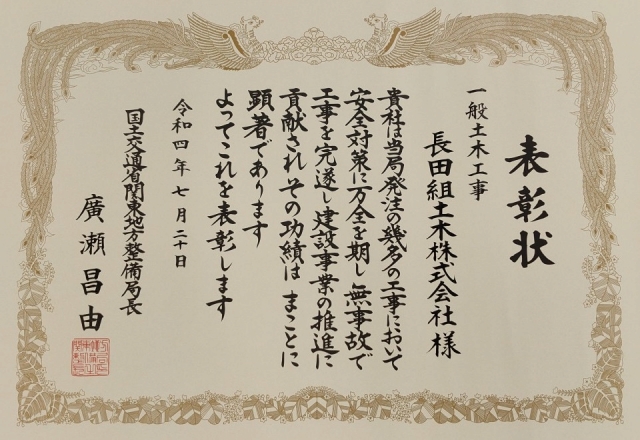 表彰状
一般土木工事
長田組土木株式会社様
貴社は当局発注の幾多の工事において
安全対策に万全を期し無事故で
工事を完遂し建設事業の推進に
貢献されその功績はまことに
顕著であります
よってこれを表彰します
令和四年七月二十日
国土交通省関東地方整備局長
廣瀬昌由